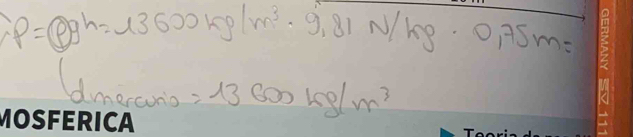 P=ρgh=13600 kg/m³ · 9,81 N/kg · 0,75m=
dmercurio = 13 600 kg/m³
MOSFERICA
GERMANY
111